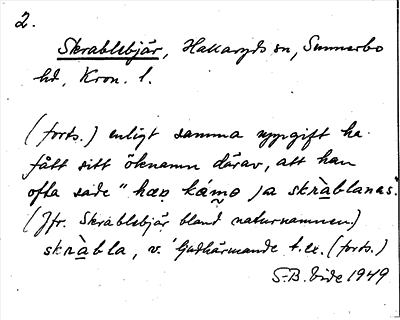 2.
Skrablebjär, Hallaryds sn, Sunnerbo
hd, Kron. l.
(forts.) enligt samma uppgift ha
fått sitt öknamn därav, att han
ofta sade "hær kámə ja skràblanəs."
(Jfr. Skrablebjär bland naturnamnen.)
skràbla, v. 'ljudhärmande t. ex. (forts.)
S-B. Vide 1949